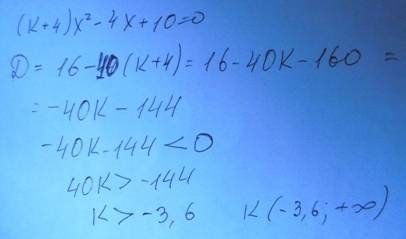 (K+4)x²-4x+10=0
D = 16-40(K+4) = 16-40K-160 =
= -40K-144
-40K-144<0
40K>-144
K>-3,6 K(-3,6; +∞)